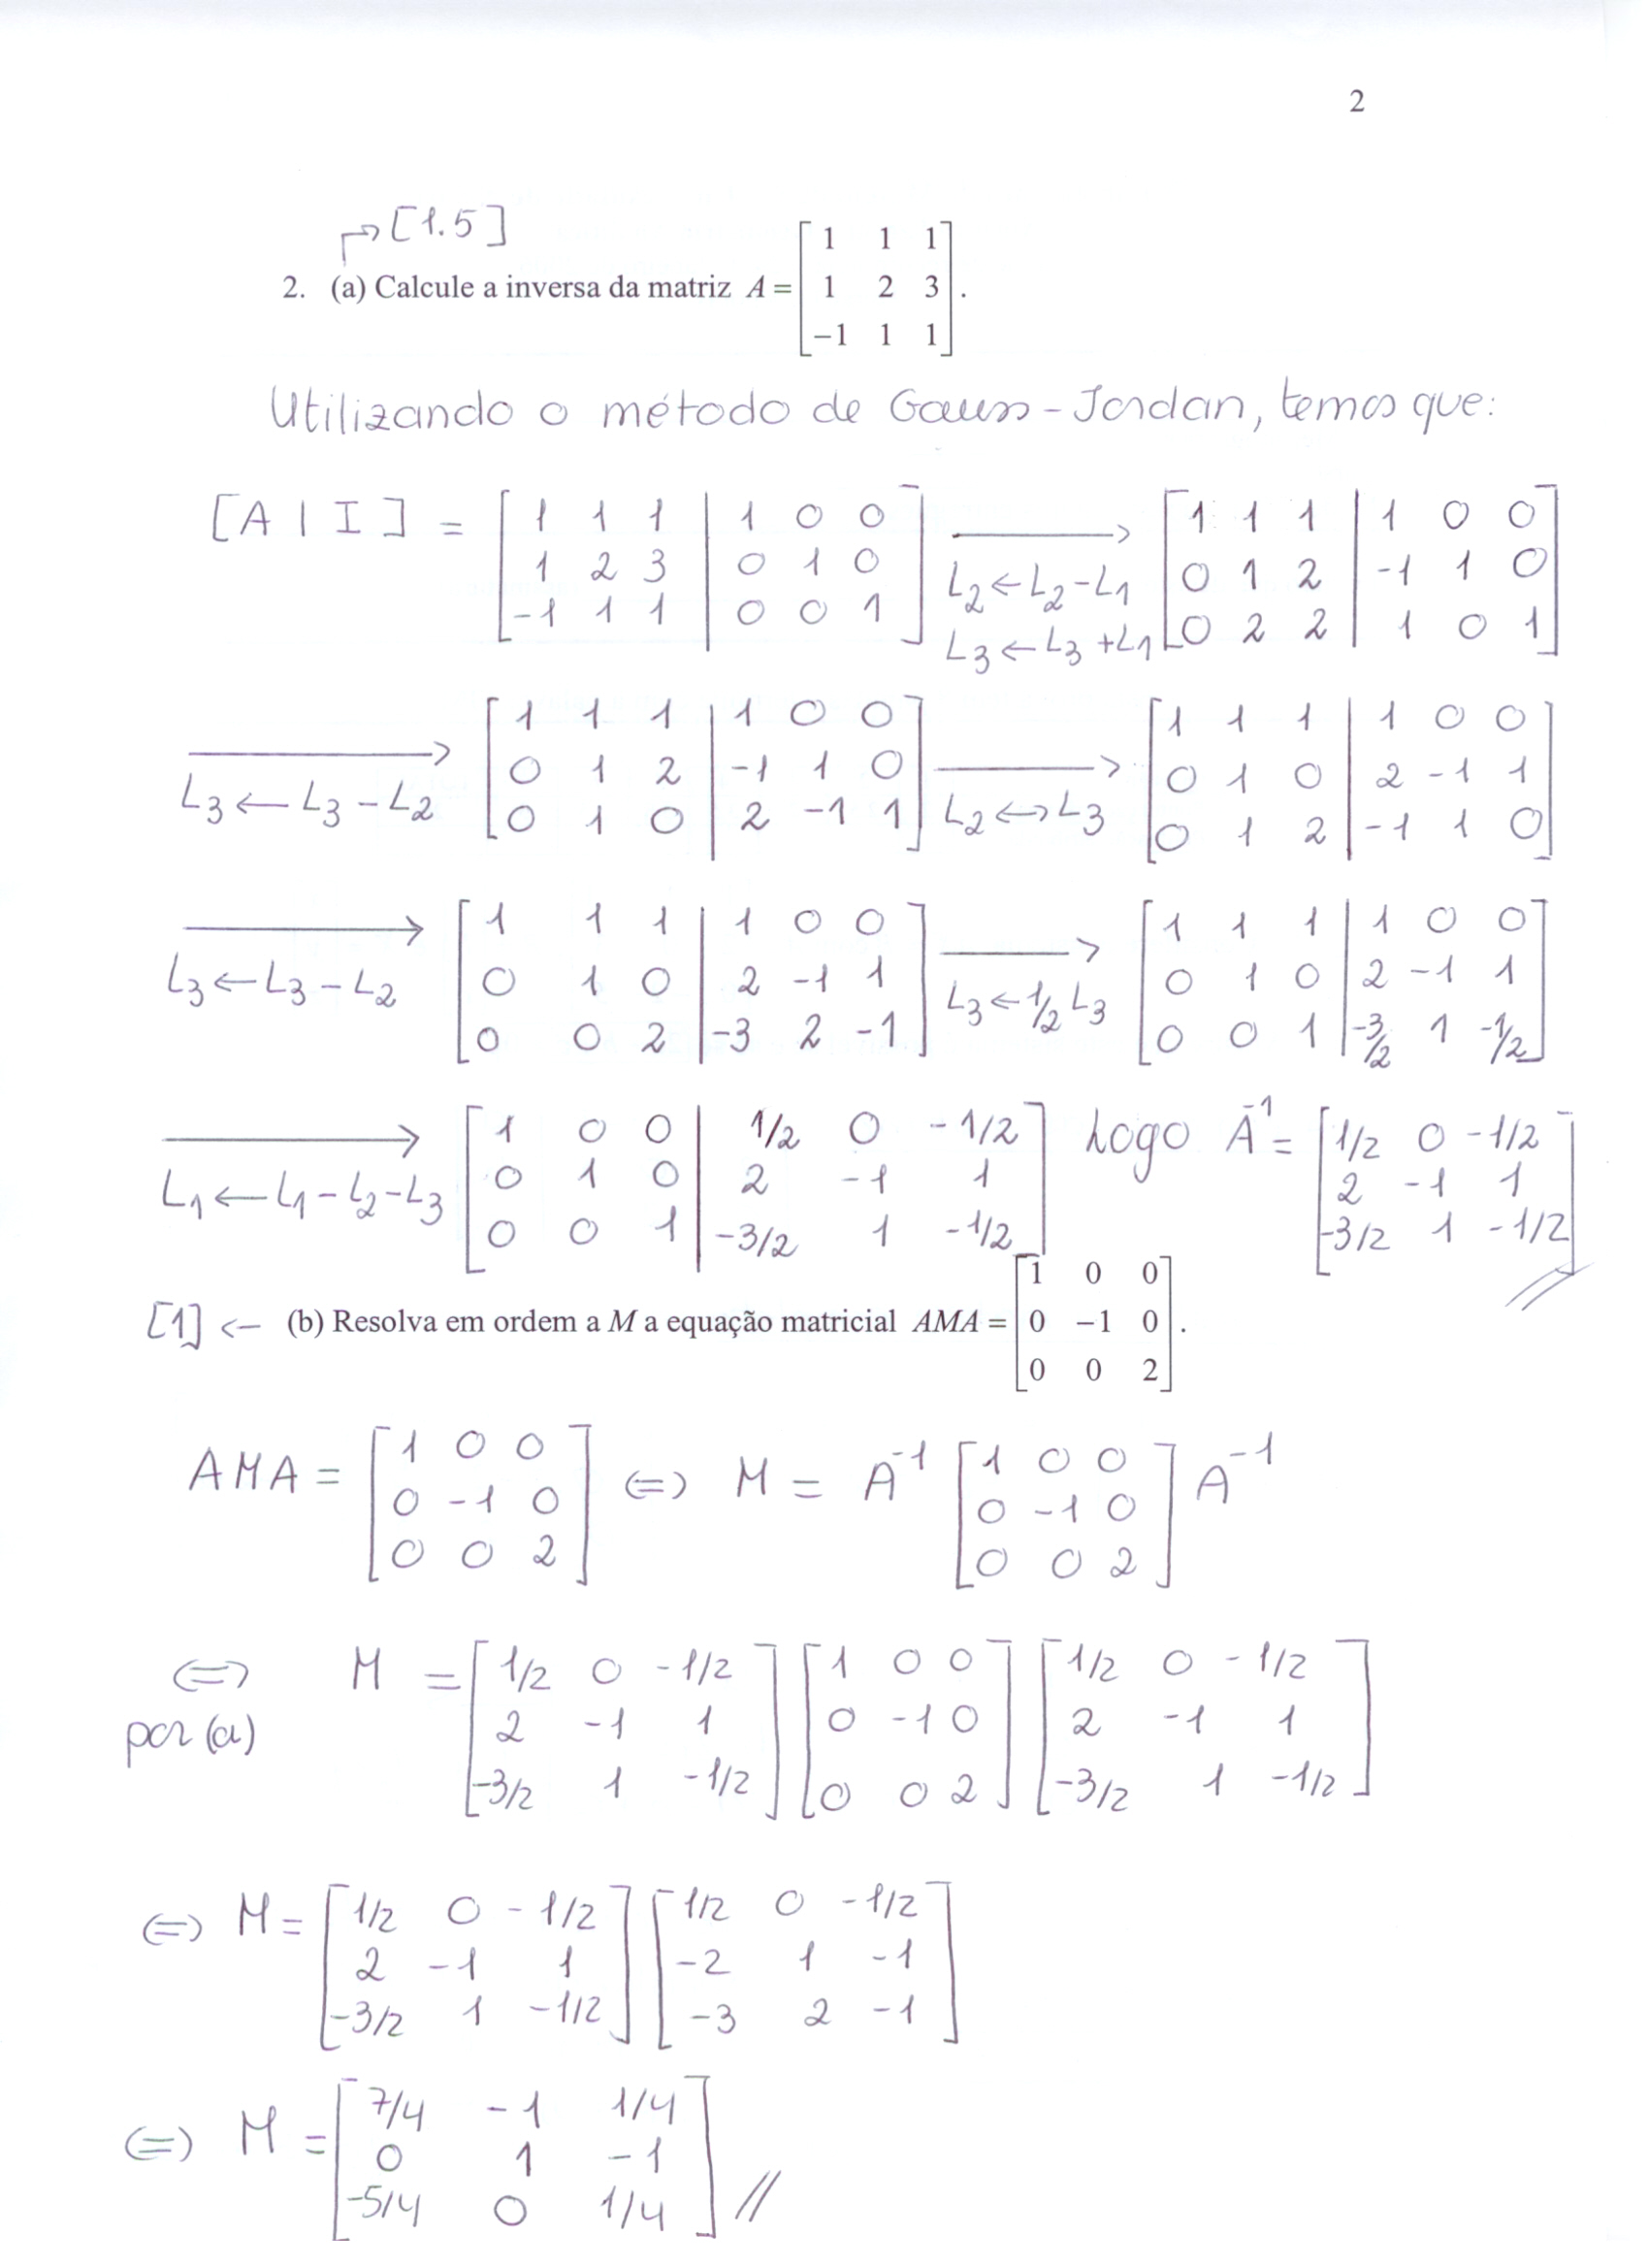 2
→ [1.5]
2. (a) Calcule a inversa da matriz A = [ 1 1 1 ; 1 2 3 ; −1 1 1 ] .
Utilizando o método de Gauss - Jordan, temos que:
[A | I] = [ 1 1 1 | 1 0 0 ; 1 2 3 | 0 1 0 ; -1 1 1 | 0 0 1 ] → L2 ← L2 - L1 L3 ← L3 + L1 [ 1 1 1 | 1 0 0 ; 0 1 2 | -1 1 0 ; 0 2 2 | 1 0 1 ]
→ L3 ← L3 - L2 [ 1 1 1 | 1 0 0 ; 0 1 2 | -1 1 0 ; 0 1 0 | 2 -1 1 ] → L2 ↔ L3 [ 1 1 1 | 1 0 0 ; 0 1 0 | 2 -1 1 ; 0 1 2 | -1 1 0 ]
→ L3 ← L3 - L2 [ 1 1 1 | 1 0 0 ; 0 1 0 | 2 -1 1 ; 0 0 2 | -3 2 -1 ] → L3 ← 1/2 L3 [ 1 1 1 | 1 0 0 ; 0 1 0 | 2 -1 1 ; 0 0 1 | -3/2 1 -1/2 ]
→ L1 ← L1 - L2 - L3 [ 1 0 0 | 1/2 0 -1/2 ; 0 1 0 | 2 -1 1 ; 0 0 1 | -3/2 1 -1/2 ] Logo A⁻¹ = [ 1/2 0 -1/2 ; 2 -1 1 ; -3/2 1 -1/2 ] //
[1] ← (b) Resolva em ordem a M a equação matricial AMA = [ 1 0 0 ; 0 −1 0 ; 0 0 2 ] .
AMA = [ 1 0 0 ; 0 -1 0 ; 0 0 2 ] ⇔ M = A⁻¹ [ 1 0 0 ; 0 -1 0 ; 0 0 2 ] A⁻¹
⇔ por (a) M = [ 1/2 0 -1/2 ; 2 -1 1 ; -3/2 1 -1/2 ] [ 1 0 0 ; 0 -1 0 ; 0 0 2 ] [ 1/2 0 -1/2 ; 2 -1 1 ; -3/2 1 -1/2 ]
⇔ M = [ 1/2 0 -1/2 ; 2 -1 1 ; -3/2 1 -1/2 ] [ 1/2 0 -1/2 ; -2 1 -1 ; -3 2 -1 ]
⇔ M = [ 7/4 -1 1/4 ; 0 1 -1 ; -5/4 0 1/4 ] //